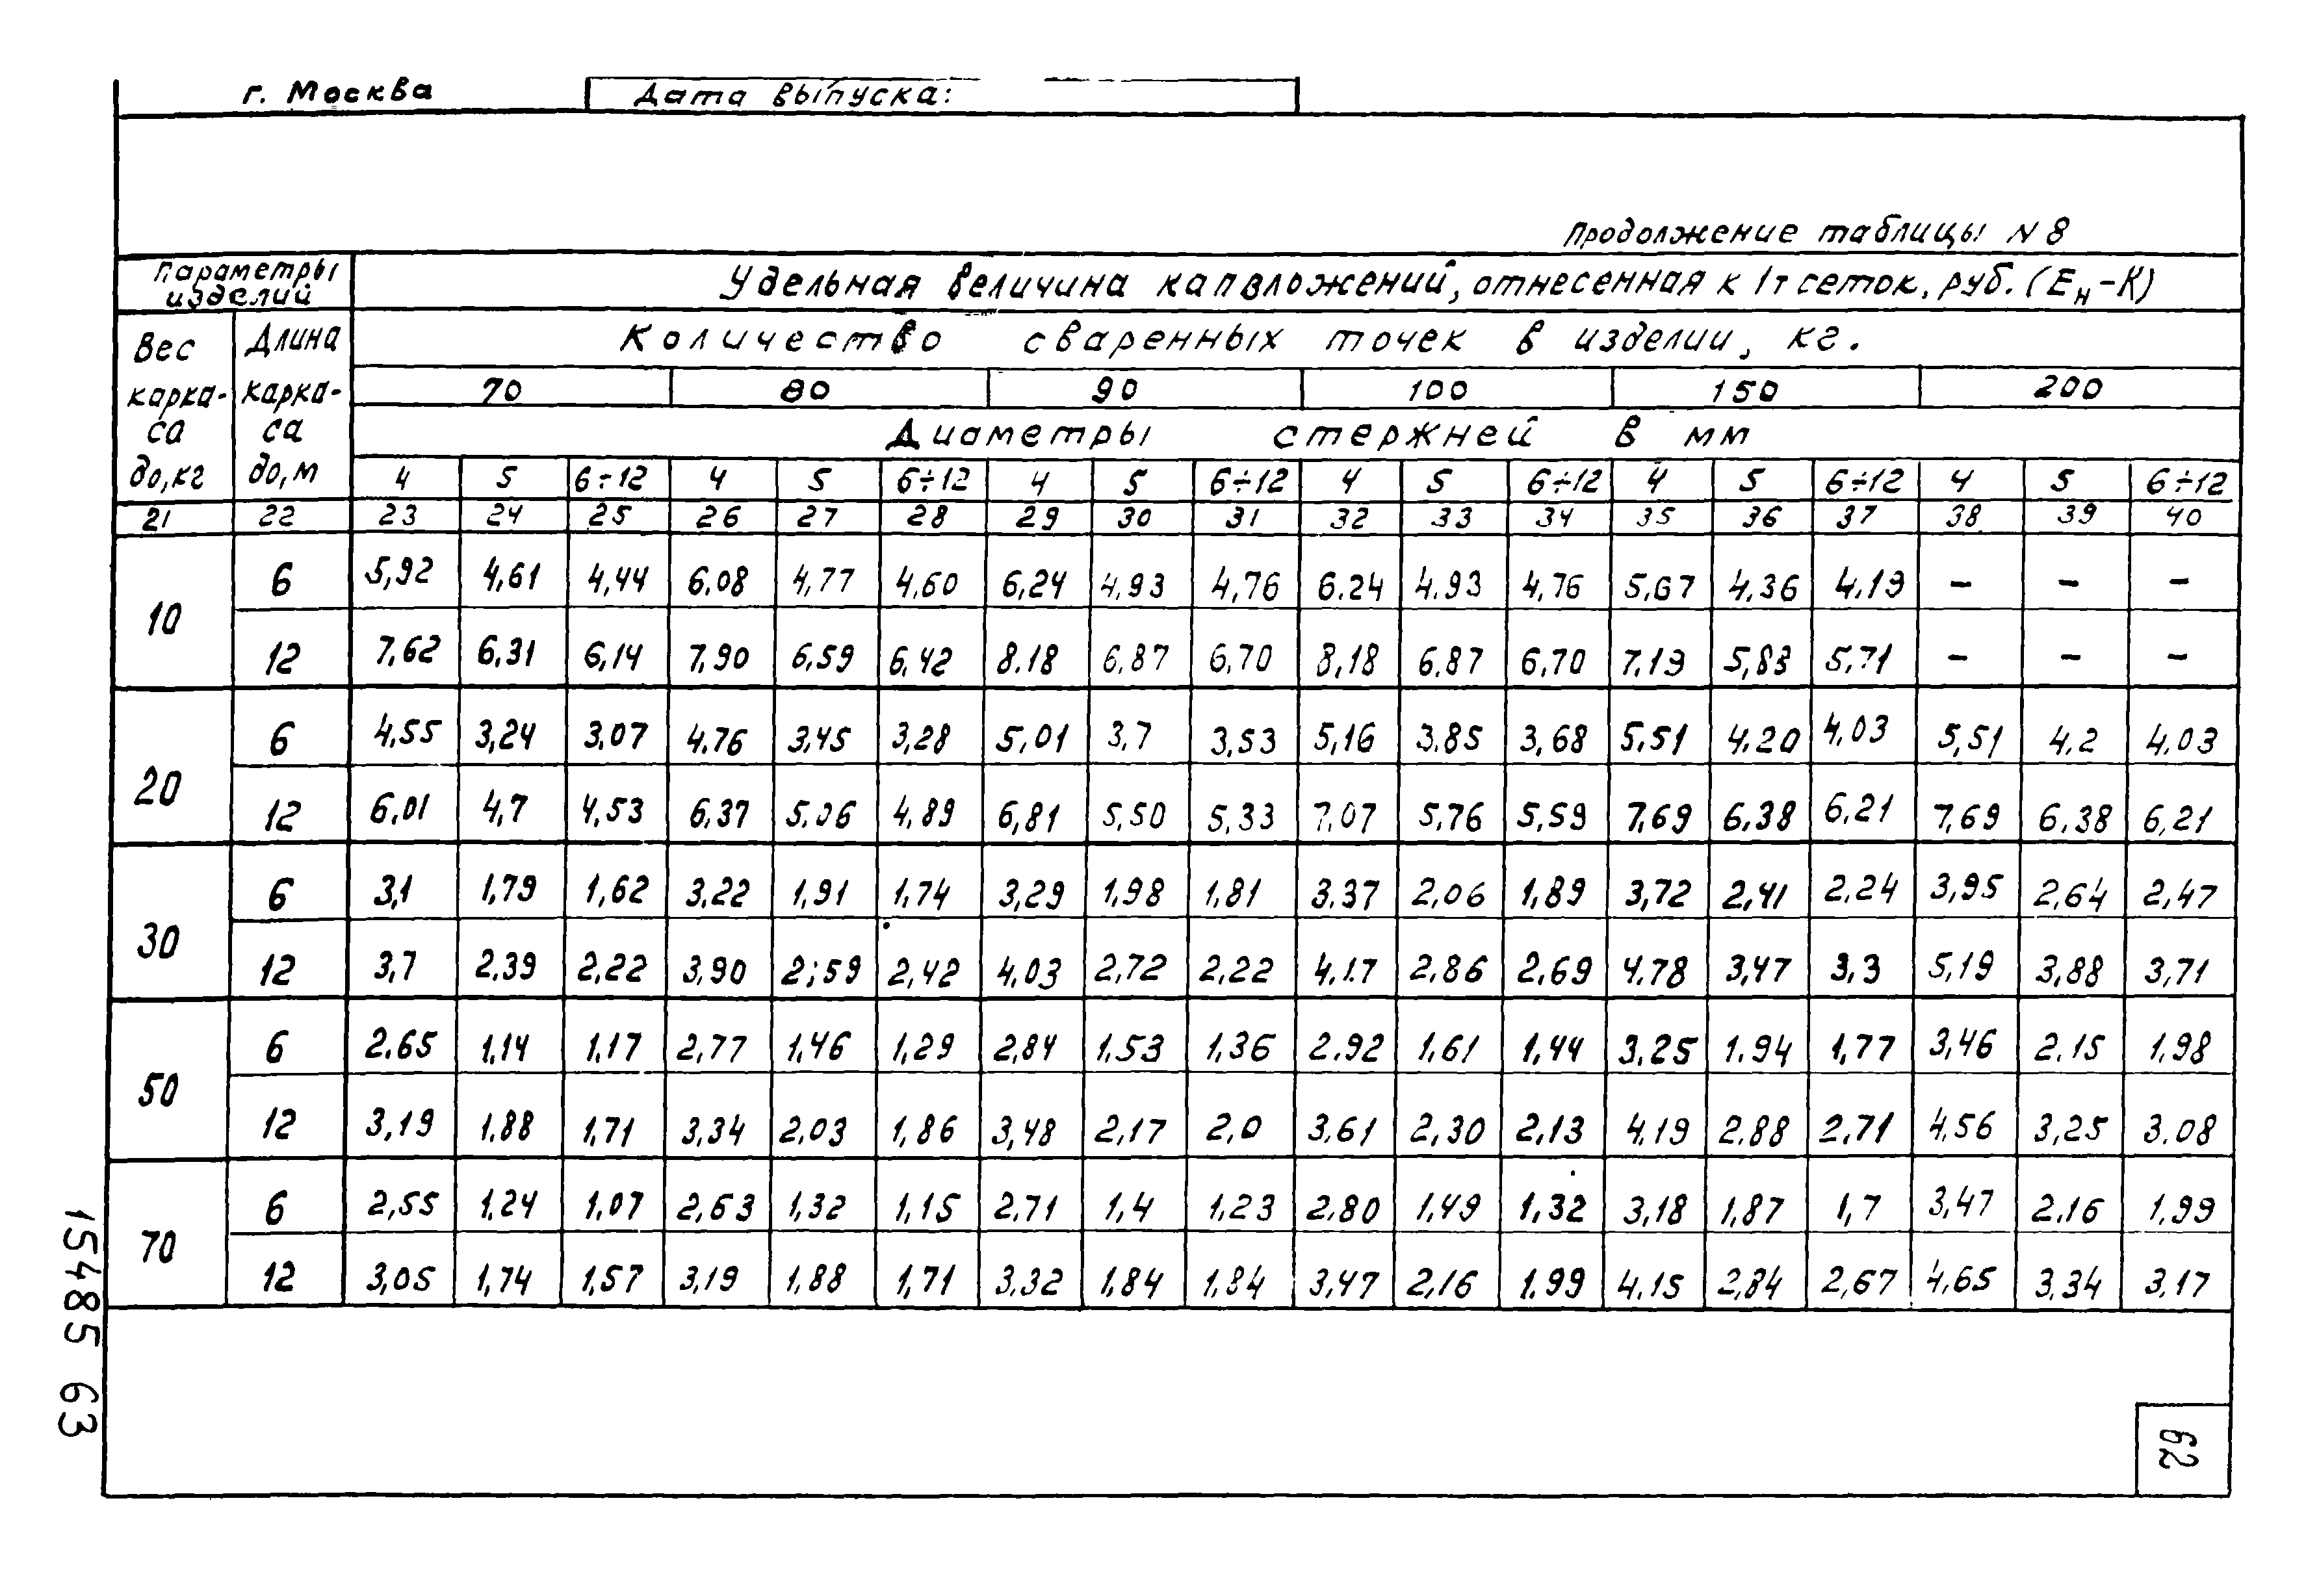 г. Москва Дата выпуска:
Продолжение таблицы N 8
Параметры изделий Удельная величина капвложений, отнесенная к 1т сеток, руб. (Eн-К)
Вес каркаса до, кг Длина каркаса до, м Количество сваренных точек в изделии, кг.
70 80 90 100 150 200
Диаметры стержней в мм
4 5 6÷12 4 5 6÷12 4 5 6÷12 4 5 6÷12 4 5 6÷12 4 5 6÷12
21 22 23 24 25 26 27 28 29 30 31 32 33 34 35 36 37 38 39 40
10 6 5,92 4,61 4,44 6,08 4,77 4,60 6,24 4,93 4,76 6.24 4.93 4,76 5,67 4,36 4,19 – – –
12 7,62 6,31 6,14 7,90 6,59 6,42 8.18 6,87 6,70 8,18 6.87 6,70 7,19 5,83 5,71 – – –
20 6 4,55 3,24 3,07 4.76 3,45 3,28 5,01 3,7 3,53 5,16 3.85 3,68 5,51 4,20 4,03 5,51 4,2 4,03
12 6,01 4,7 4,53 6,37 5,06 4,89 6,81 5,50 5,33 7,07 5,76 5,59 7,69 6,38 6,21 7,69 6,38 6,21
30 6 3,1 1,79 1,62 3,22 1,91 1,74 3,29 1,98 1,81 3.37 2,06 1,89 3,72 2,41 2,24 3,95 2,64 2,47
12 3,7 2,39 2,22 3,90 2;59 2,42 4,03 2,72 2,22 4.17 2,86 2,69 4.78 3,47 3,3 5,19 3,88 3,71
50 6 2,65 1,14 1,17 2,77 1,46 1,29 2,84 1,53 1,36 2.92 1,61 1,44 3,25 1.94 1,77 3,46 2.15 1,98
12 3,19 1.88 1,71 3,34 2,03 1,86 3,48 2,17 2,0 3,61 2,30 2,13 4.19 2.88 2,71 4,56 3,25 3.08
70 6 2,55 1,24 1,07 2,63 1,32 1,15 2,71 1,4 1,23 2,80 1,49 1,32 3,18 1,87 1,7 3,47 2,16 1,99
12 3,05 1,74 1,57 3,19 1,88 1,71 3,32 1,84 1,84 3,47 2,16 1.99 4.15 2,84 2,67 4,65 3,34 3,17
15485 63
62